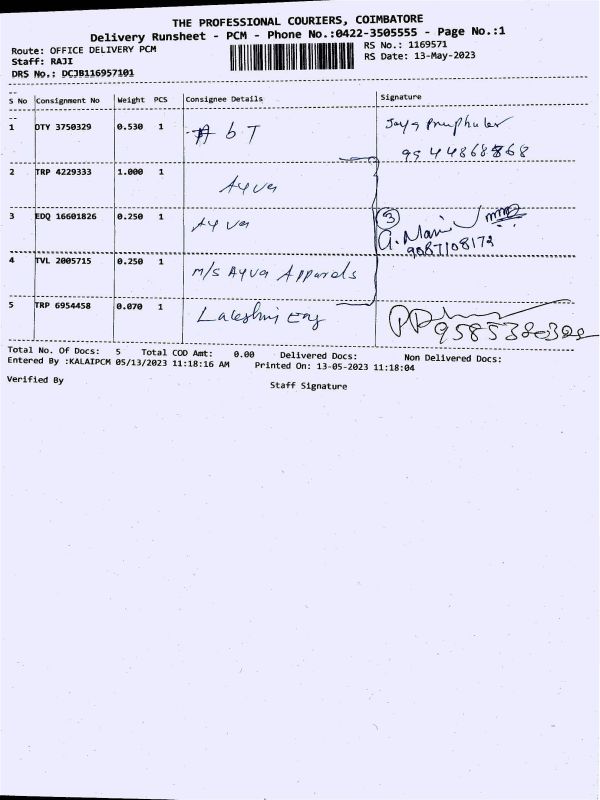 THE PROFESSIONAL COURIERS, COIMBATORE
Delivery Runsheet - PCM - Phone No.:0422-3505555 - Page No.:1
Route: OFFICE DELIVERY PCM
RS No.: 1169571
Staff: RAJI
RS Date: 13-May-2023
DRS No.: DCJB116957101
S No Consignment No Weight PCS Consignee Details Signature
1 DTY 3750329 0.530 1 A b T
9944868868
2 TRP 4229333 1.000 1 Ayva
3 EDQ 16601826 0.250 1 Ayva
3
G. Mani
9087108172
4 TVL 2005715 0.250 1 M/s Ayva Apparals
5 TRP 6954458 0.070 1
Total No. Of Docs: 5 Total COD Amt: 0.00 Delivered Docs: Non Delivered Docs:
Entered By :KALAIPCM 05/13/2023 11:18:16 AM Printed On: 13-05-2023 11:18:04
Verified By
Staff Signature